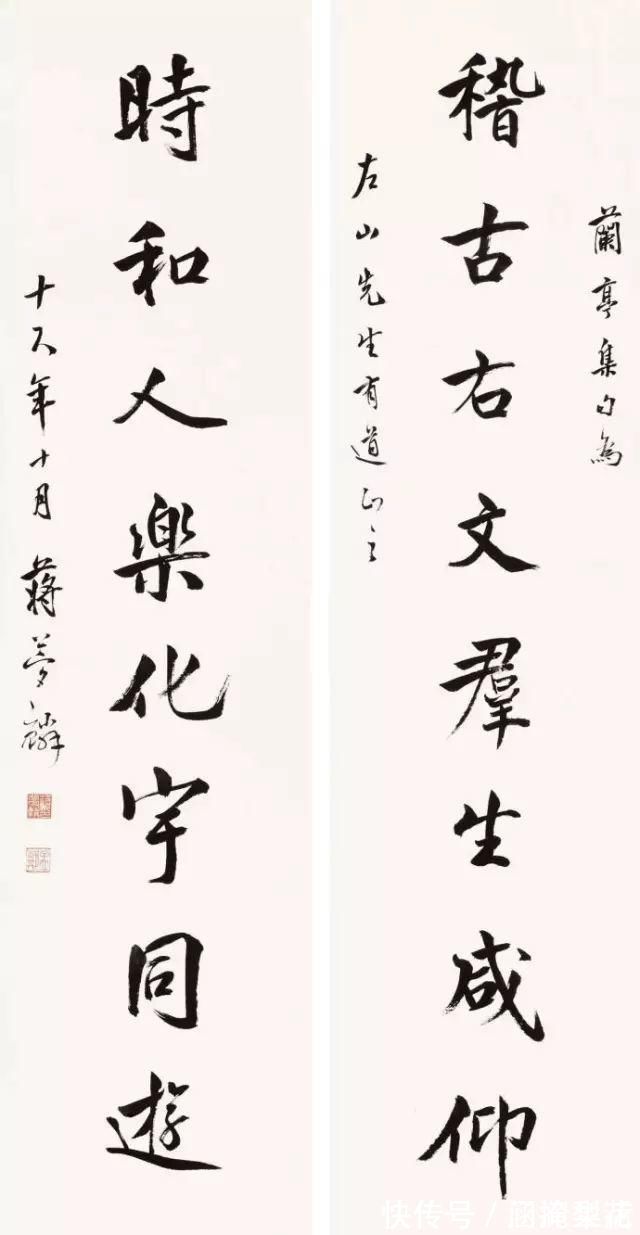 蘭亭集句為
稽古右文羣生咸仰
左山先生有道正之
時和人樂化宇同遊
十八年十月蔣夢麟
快传号